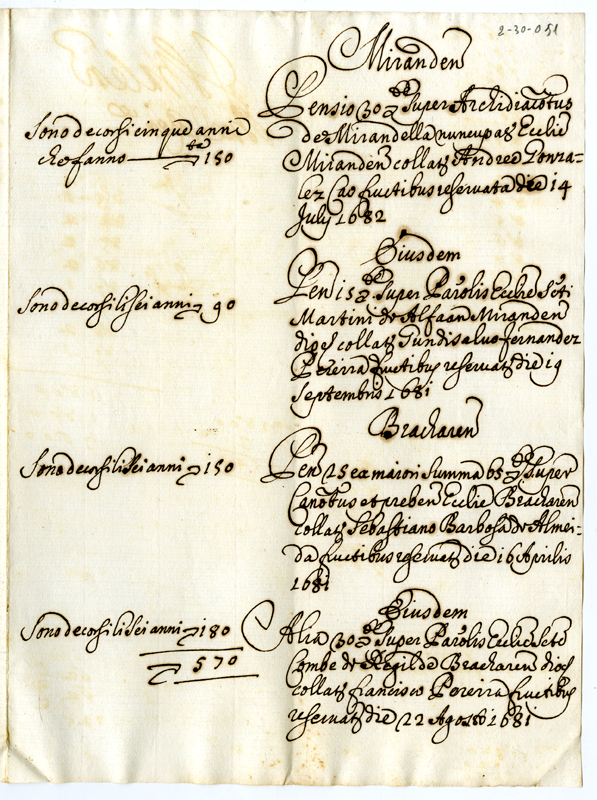 2-30-051
Miranden
Pensio 30 Super Archidiacotus
de Mirandella nuncupat Ecclie
Miranden collat Andree Gonza=
lez Cao fructibus reservata die 14
July 1682
Sono decorsi cinque anni
che fanno 150
Eiusdem
Pen 15 Super Parolis Ecclie Scti
Martini de Alfaan Miranden
dioc collat Gundisalvo fernandez
Pereira fructibus reservat die 19
Septembris 1681
Sono decorsi li sei anni 90
Bracharen
Pen 25 ex maiori Summa 65 Super
Canotus et preben Ecclie Bracharen
collat Sebastiano Barbosa de Almei=
da fructibus reservat die 16 Aprilis
1681
Sono decorsi li sei anni 150
Eiusdem
Alia 30 Super Parolis Ecclie Scte
Combe de Regilde Bracharen dioc
collat francisco Pereira fructibus
reservat die 22 Agosti 1681
Sono decorsi li sei anni 180
570